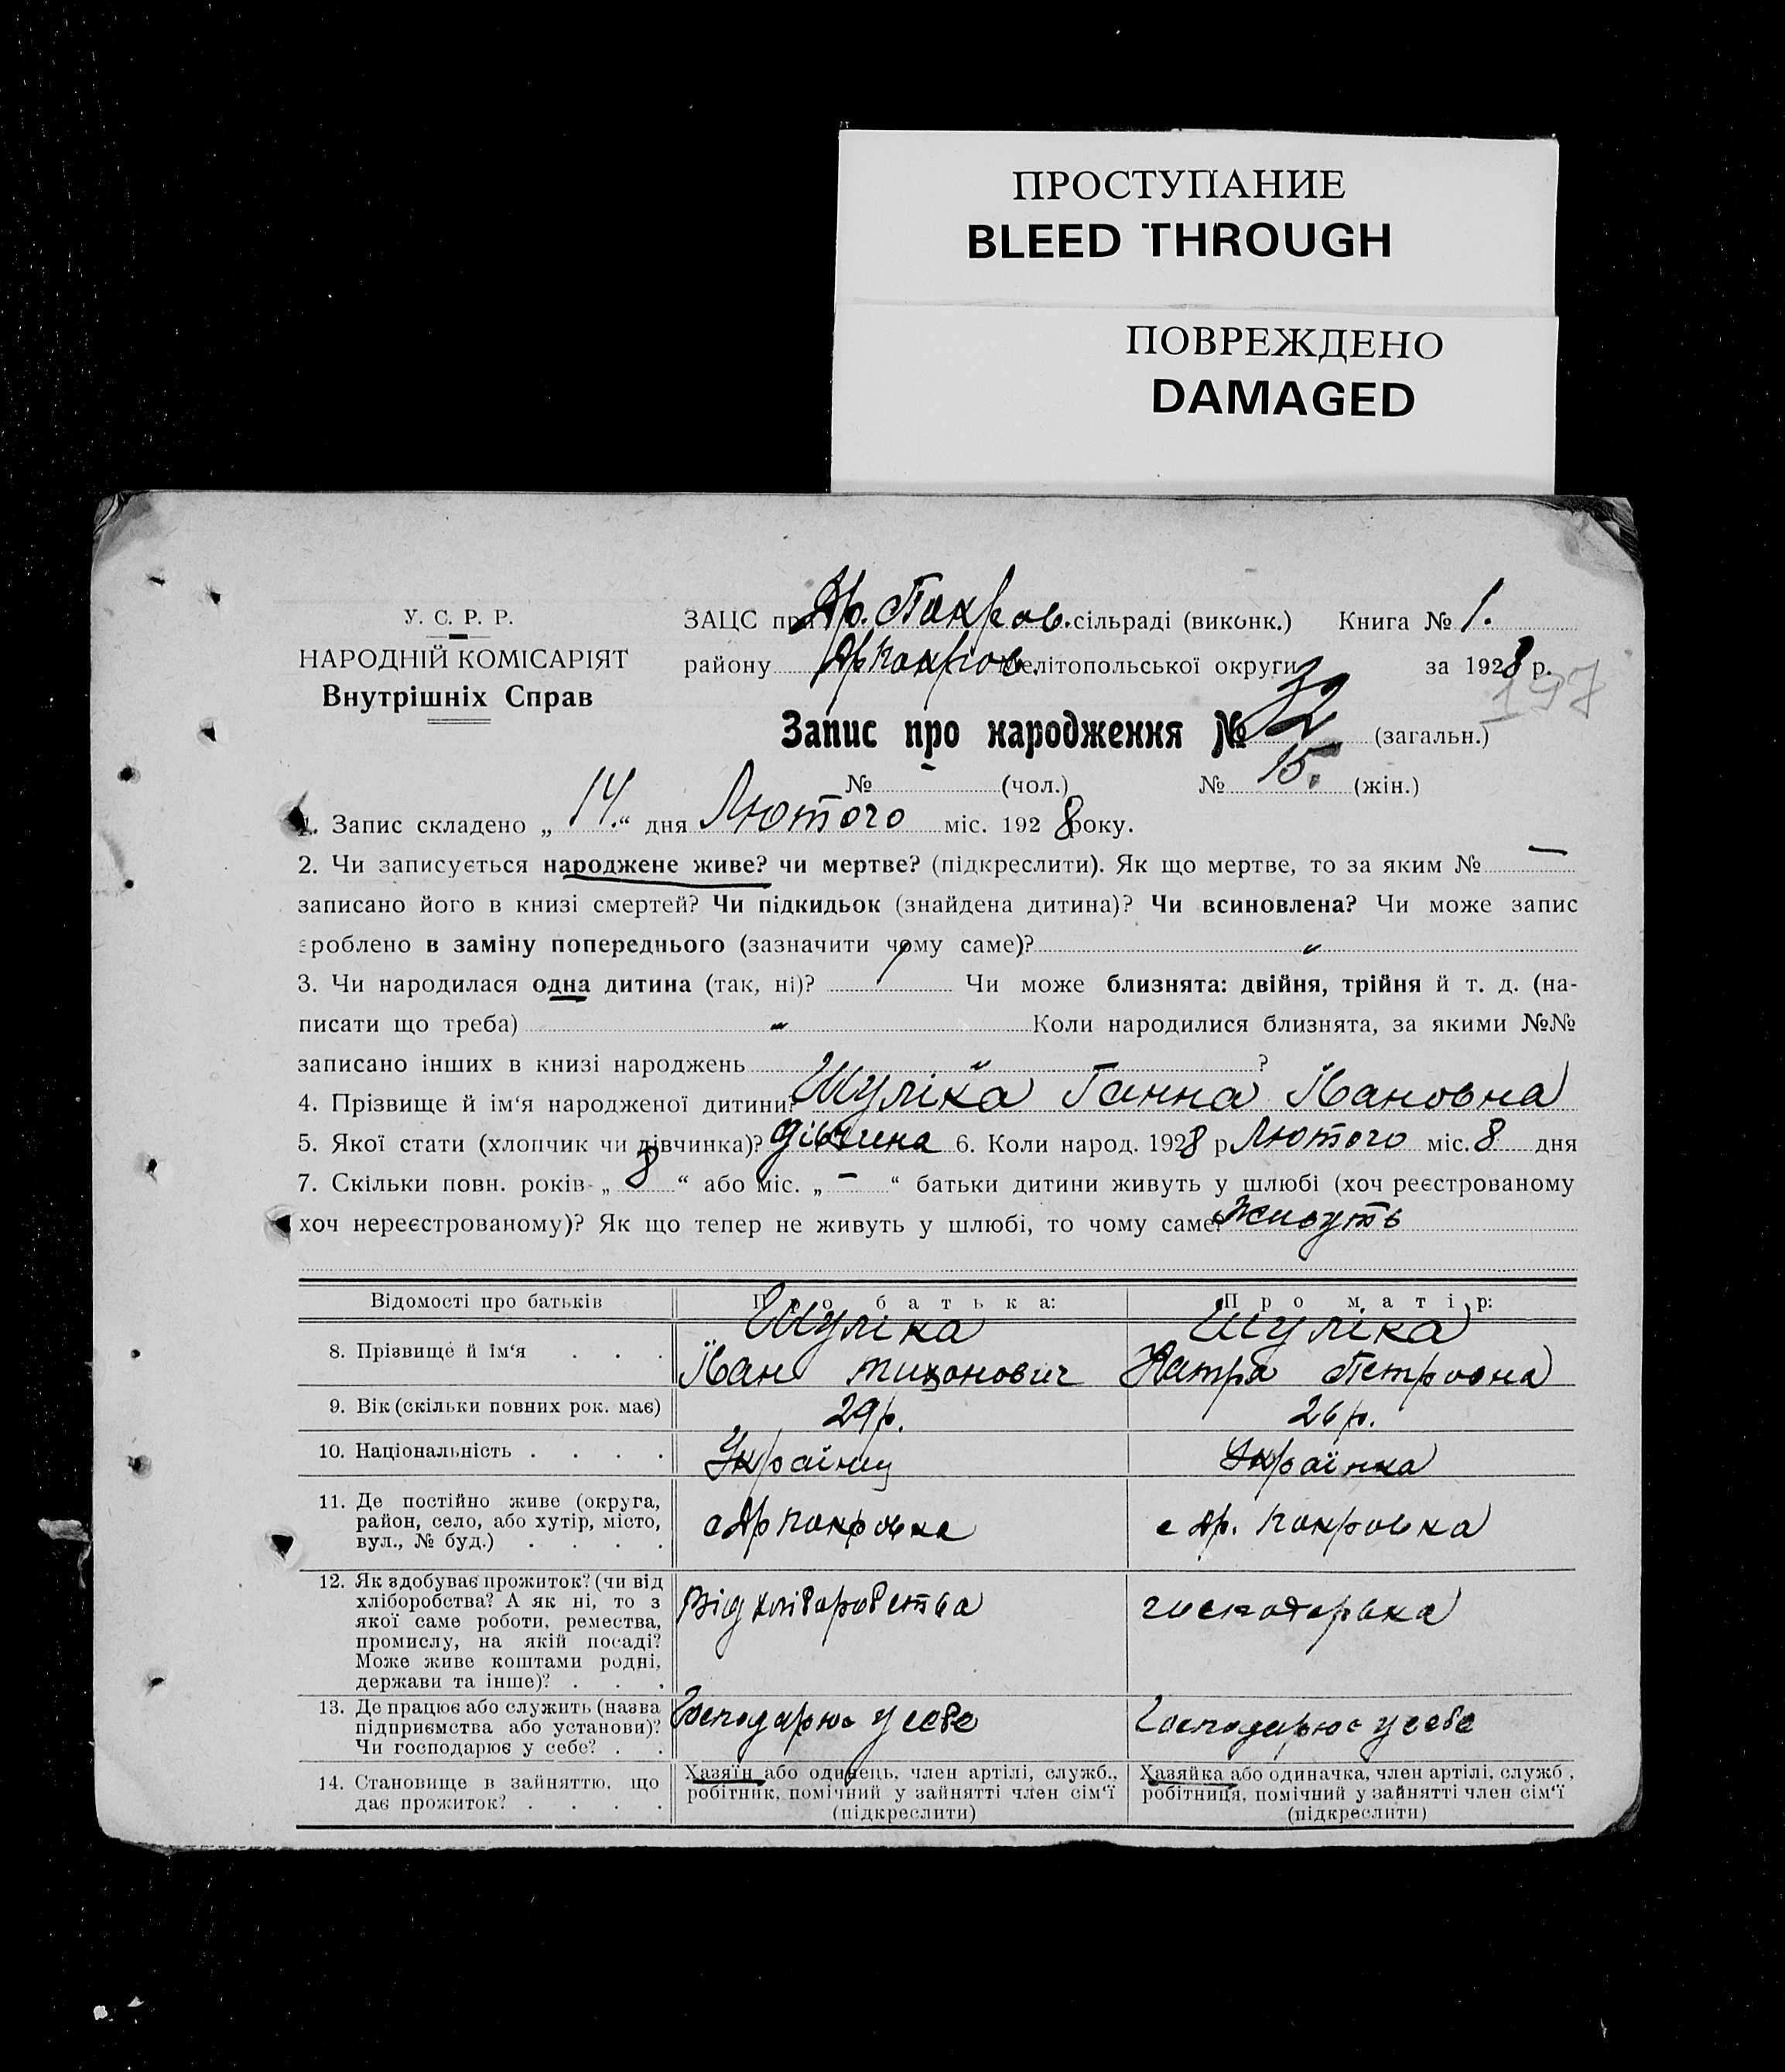 ПРОСТУПАНИЕ
BLEED THROUGH
ПОВРЕЖДЕНО
DAMAGED
У. С. Р. Р.
НАРОДНІЙ КОМІСАРІЯТ
Внутрішніх Справ
ЗАЦС при Др. Покров. сільраді (виконк.) Книга № 1.
району Дрпокров Мелітопольської округи за 1928 р.
197
Запис про народження № 32 (загальн.)
№ - (чол.) № 15. (жін.)
1. Запис складено „ 14. “ дня Лютого міс. 1928 року.
2. Чи записується народжене живе? чи мертве? (підкреслити). Як що мертве, то за яким № —
записано його в книзі смертей? Чи підкидьок (знайдена дитина)? Чи всиновлена? Чи може запис
зроблено в заміну попереднього (зазначити чому саме)? "
3. Чи народилася одна дитина (так, ні)? / Чи може близнята: двійня, трійня й т. д. (на-
писати що треба) " Коли народилися близнята, за якими №№
записано інших в книзі народжень " ?
4. Прізвище й ім‘я народженої дитини? Шуліка Ганна Івановна
5. Якої стати (хлопчик чи дівчинка)? дівчина 6. Коли народ. 1928 р Лютого міс. 8 дня
7. Скільки повн. років „ 8 “ або міс. „ - “ батьки дитини живуть у шлюбі (хоч реєстрованому
хоч нереєстрованому)? Як що тепер не живуть у шлюбі, то чому саме? Живуть
Відомості про батьків Про батька: Про матір:
8. Прізвище й ім‘я . . . Шуліка Іван тихонович Шуліка Петровна
9. Вік (скільки повних рок. має) 29 р. 26 р.
10. Національність . . . . Українец Українка
11. Де постійно живе (округа,
район, село, або хутір, місто,
вул., № буд.) . . . . с Дрпокровка с Др. покровка
12. Як здобуває прожиток? (чи від
хліборобства? А як ні, то з
якої саме роботи, ремества,
промислу, на якій посаді?
Може живе коштами родні,
держави та інше)? . . . Від хліборобства господарка
13. Де працює або служить (назва
підприємства або установи)?
Чи господарює у себе? . . Господарює у себе Господарює у себе
14. Становище в зайняттю, що
дає прожиток? . . . .
Хазяїн або одинець, член артілі, служб.,
робітник, помічний у зайнятті член сім‘ї
(підкреслити)
Хазяйка або одиначка, член артілі, служб.,
робітниця, помічний у зайнятті член сім‘ї
(підкреслити)